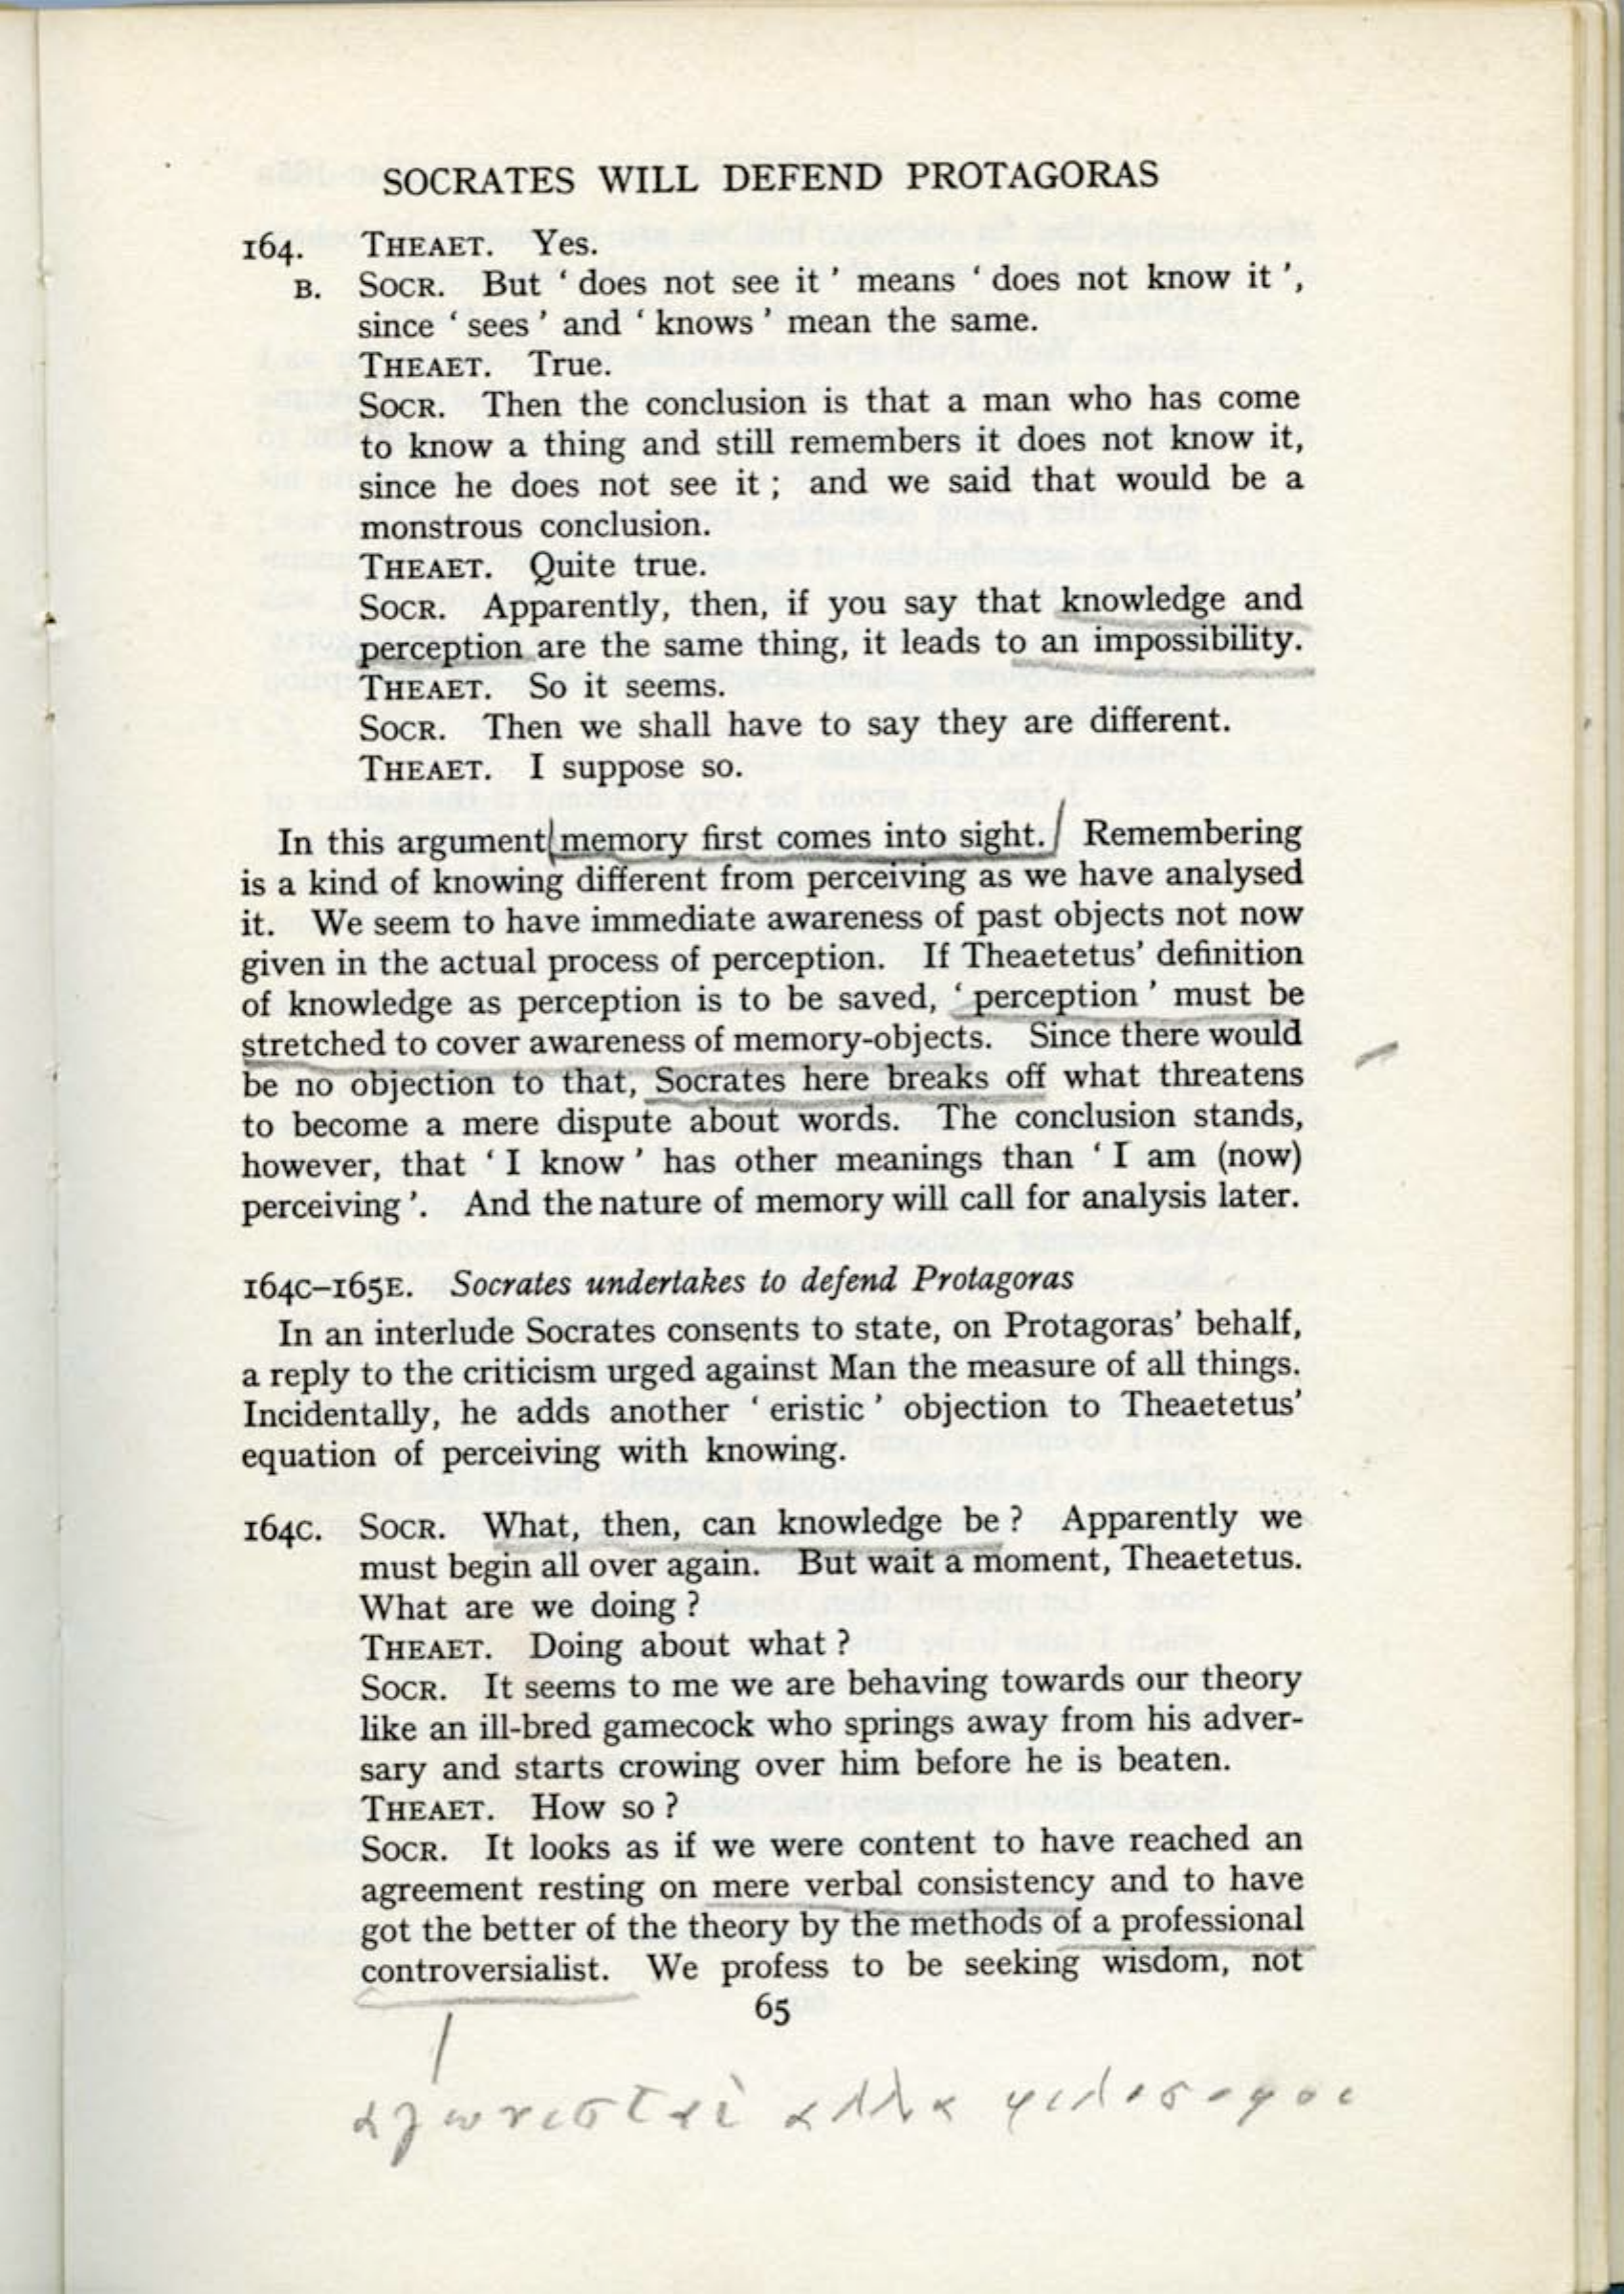 SOCRATES WILL DEFEND PROTAGORAS
164. THEAET. Yes.
B. SOCR. But ‘ does not see it ’ means ‘ does not know it ’,
since ‘ sees ’ and ‘ knows ’ mean the same.
THEAET. True.
SOCR. Then the conclusion is that a man who has come
to know a thing and still remembers it does not know it,
since he does not see it ; and we said that would be a
monstrous conclusion.
THEAET. Quite true.
SOCR. Apparently, then, if you say that knowledge and
perception are the same thing, it leads to an impossibility.
THEAET. So it seems.
SOCR. Then we shall have to say they are different.
THEAET. I suppose so.
In this argument memory first comes into sight. Remembering
is a kind of knowing different from perceiving as we have analysed
it. We seem to have immediate awareness of past objects not now
given in the actual process of perception. If Theaetetus’ definition
of knowledge as perception is to be saved, ‘ perception ’ must be
stretched to cover awareness of memory-objects. Since there would
be no objection to that, Socrates here breaks off what threatens
to become a mere dispute about words. The conclusion stands,
however, that ‘ I know ’ has other meanings than ‘ I am (now)
perceiving ’. And the nature of memory will call for analysis later.
164C–165E. Socrates undertakes to defend Protagoras
In an interlude Socrates consents to state, on Protagoras’ behalf,
a reply to the criticism urged against Man the measure of all things.
Incidentally, he adds another ‘ eristic ’ objection to Theaetetus’
equation of perceiving with knowing.
164C. SOCR. What, then, can knowledge be ? Apparently we
must begin all over again. But wait a moment, Theaetetus.
What are we doing ?
THEAET. Doing about what ?
SOCR. It seems to me we are behaving towards our theory
like an ill-bred gamecock who springs away from his adver-
sary and starts crowing over him before he is beaten.
THEAET. How so ?
SOCR. It looks as if we were content to have reached an
agreement resting on mere verbal consistency and to have
got the better of the theory by the methods of a professional
controversialist. We profess to be seeking wisdom, not
65
αγωνισταὶ αλλα φιλοσοφοι